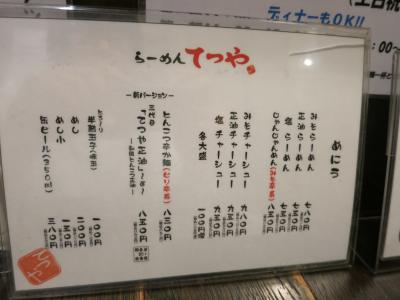 ディナーもOK!!
らーめん てつや
めにう
みそらーめん 七八〇円
正油らーめん 七五〇円
塩らーめん 七五〇円
じゃんじゃんめん(みそ辛系) 八五〇円
みそチャーシュー 九八〇円
正油チャーシュー 九五〇円
塩チャーシュー 九五〇円
各大盛 一〇〇円増
―新バージョン―
とんこつ辛か麺(ピリ辛系) 八三〇円
三代目
「てつや正油」 八五〇円
とろ〜り
半熟玉子(味玉) 一〇〇円
めし 二〇〇円
めし小 一五〇円
缶ビール(350ml) 三八〇円
てつや